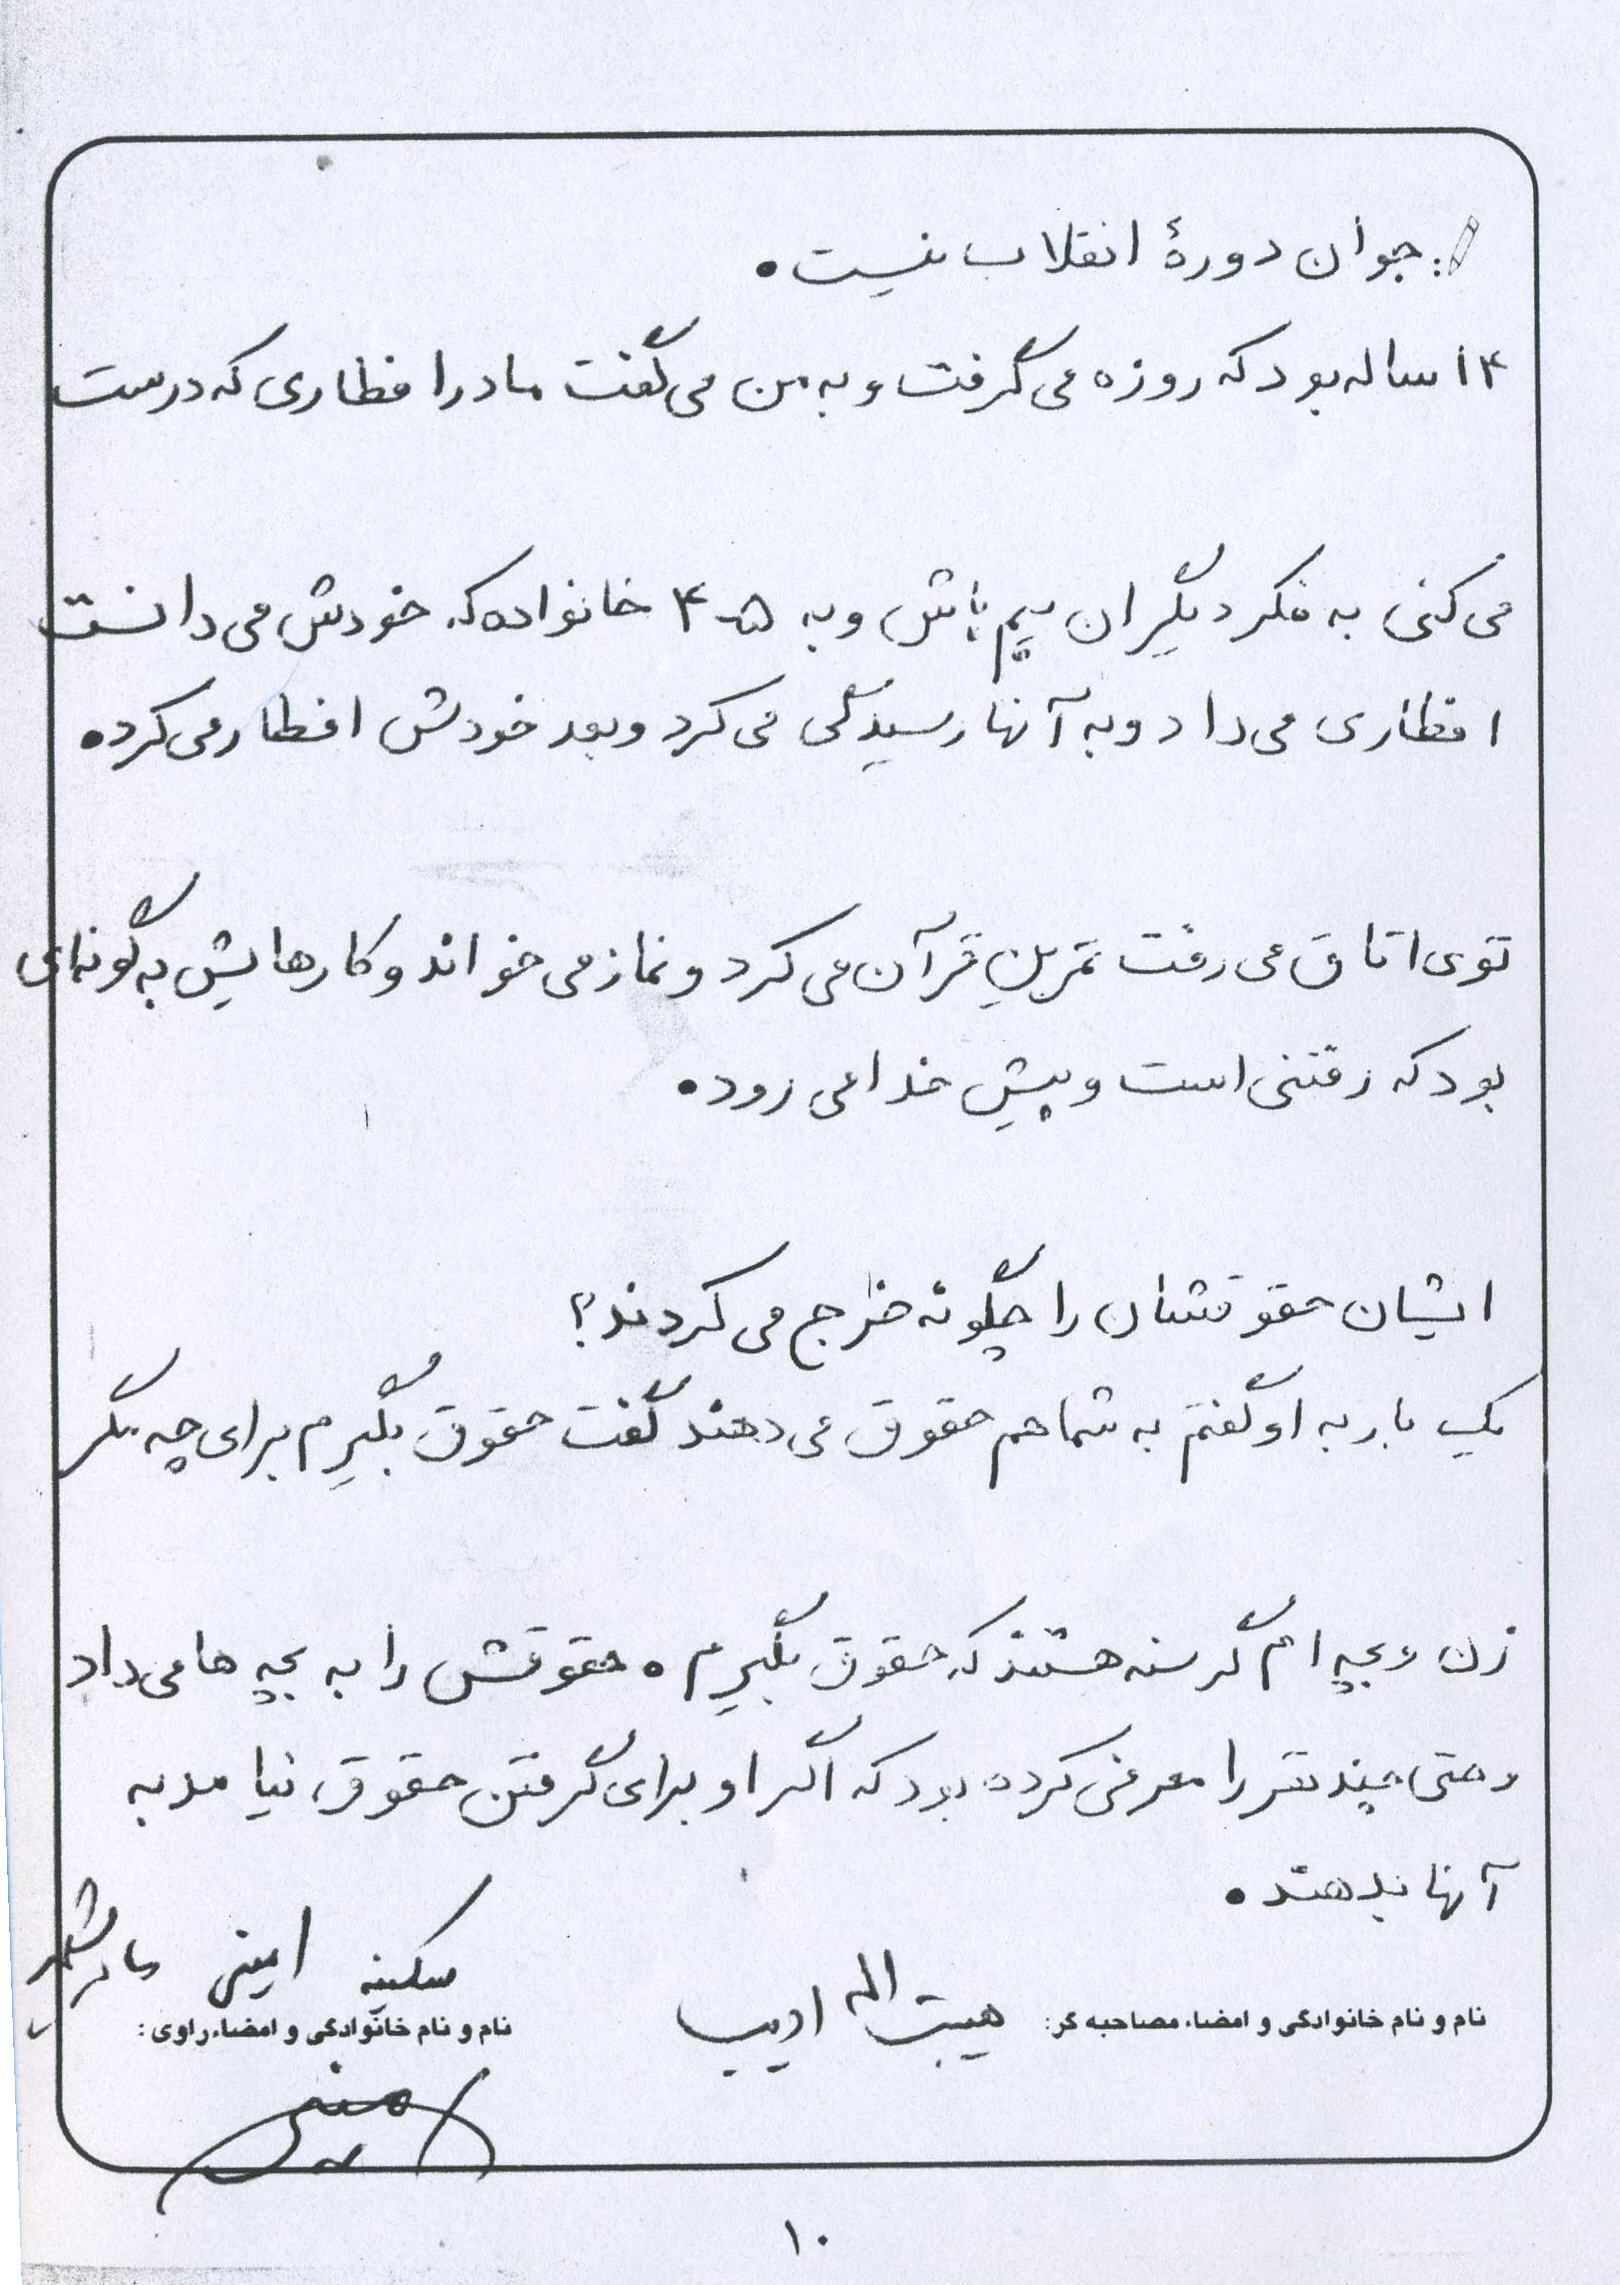 : جوان دورهٔ انقلاب نیست.
۱۴ ساله بود که روزه می گرفت و به من می گفت مادر افطاری که درست
می کنی به فکر دیگران هم باش و به ۵-۴ خانواده که خودش می دانست
افطاری می داد و به آنها رسیدگی می کرد و بعد خودش افطار می کرد.
توی اتاق می رفت تمرین قرآن می کرد و نماز می خواند و کارهایش به گونه ای
بود که رفتنی است و پیش خدا می رود.
ایشان حقوقشان را چگونه خرج می کردند؟
یک بار به او گفتم به شما هم حقوق می دهند گفت حقوق بگیرم برای چه مگر
زن و بچه ام گرسنه هستند که حقوق بگیرم. حقوقش را به بچه ها می داد
و حتی چند نفر را معرفی کرده بود که اگر او برای گرفتن حقوق نیامد به
آنها بدهند.
سکینه امینی مادر شهید
نام و نام خانوادگی و امضاء مصاحبه گر: هیبت اله ادیب
نام و نام خانوادگی و امضاء راوی:
۱۰